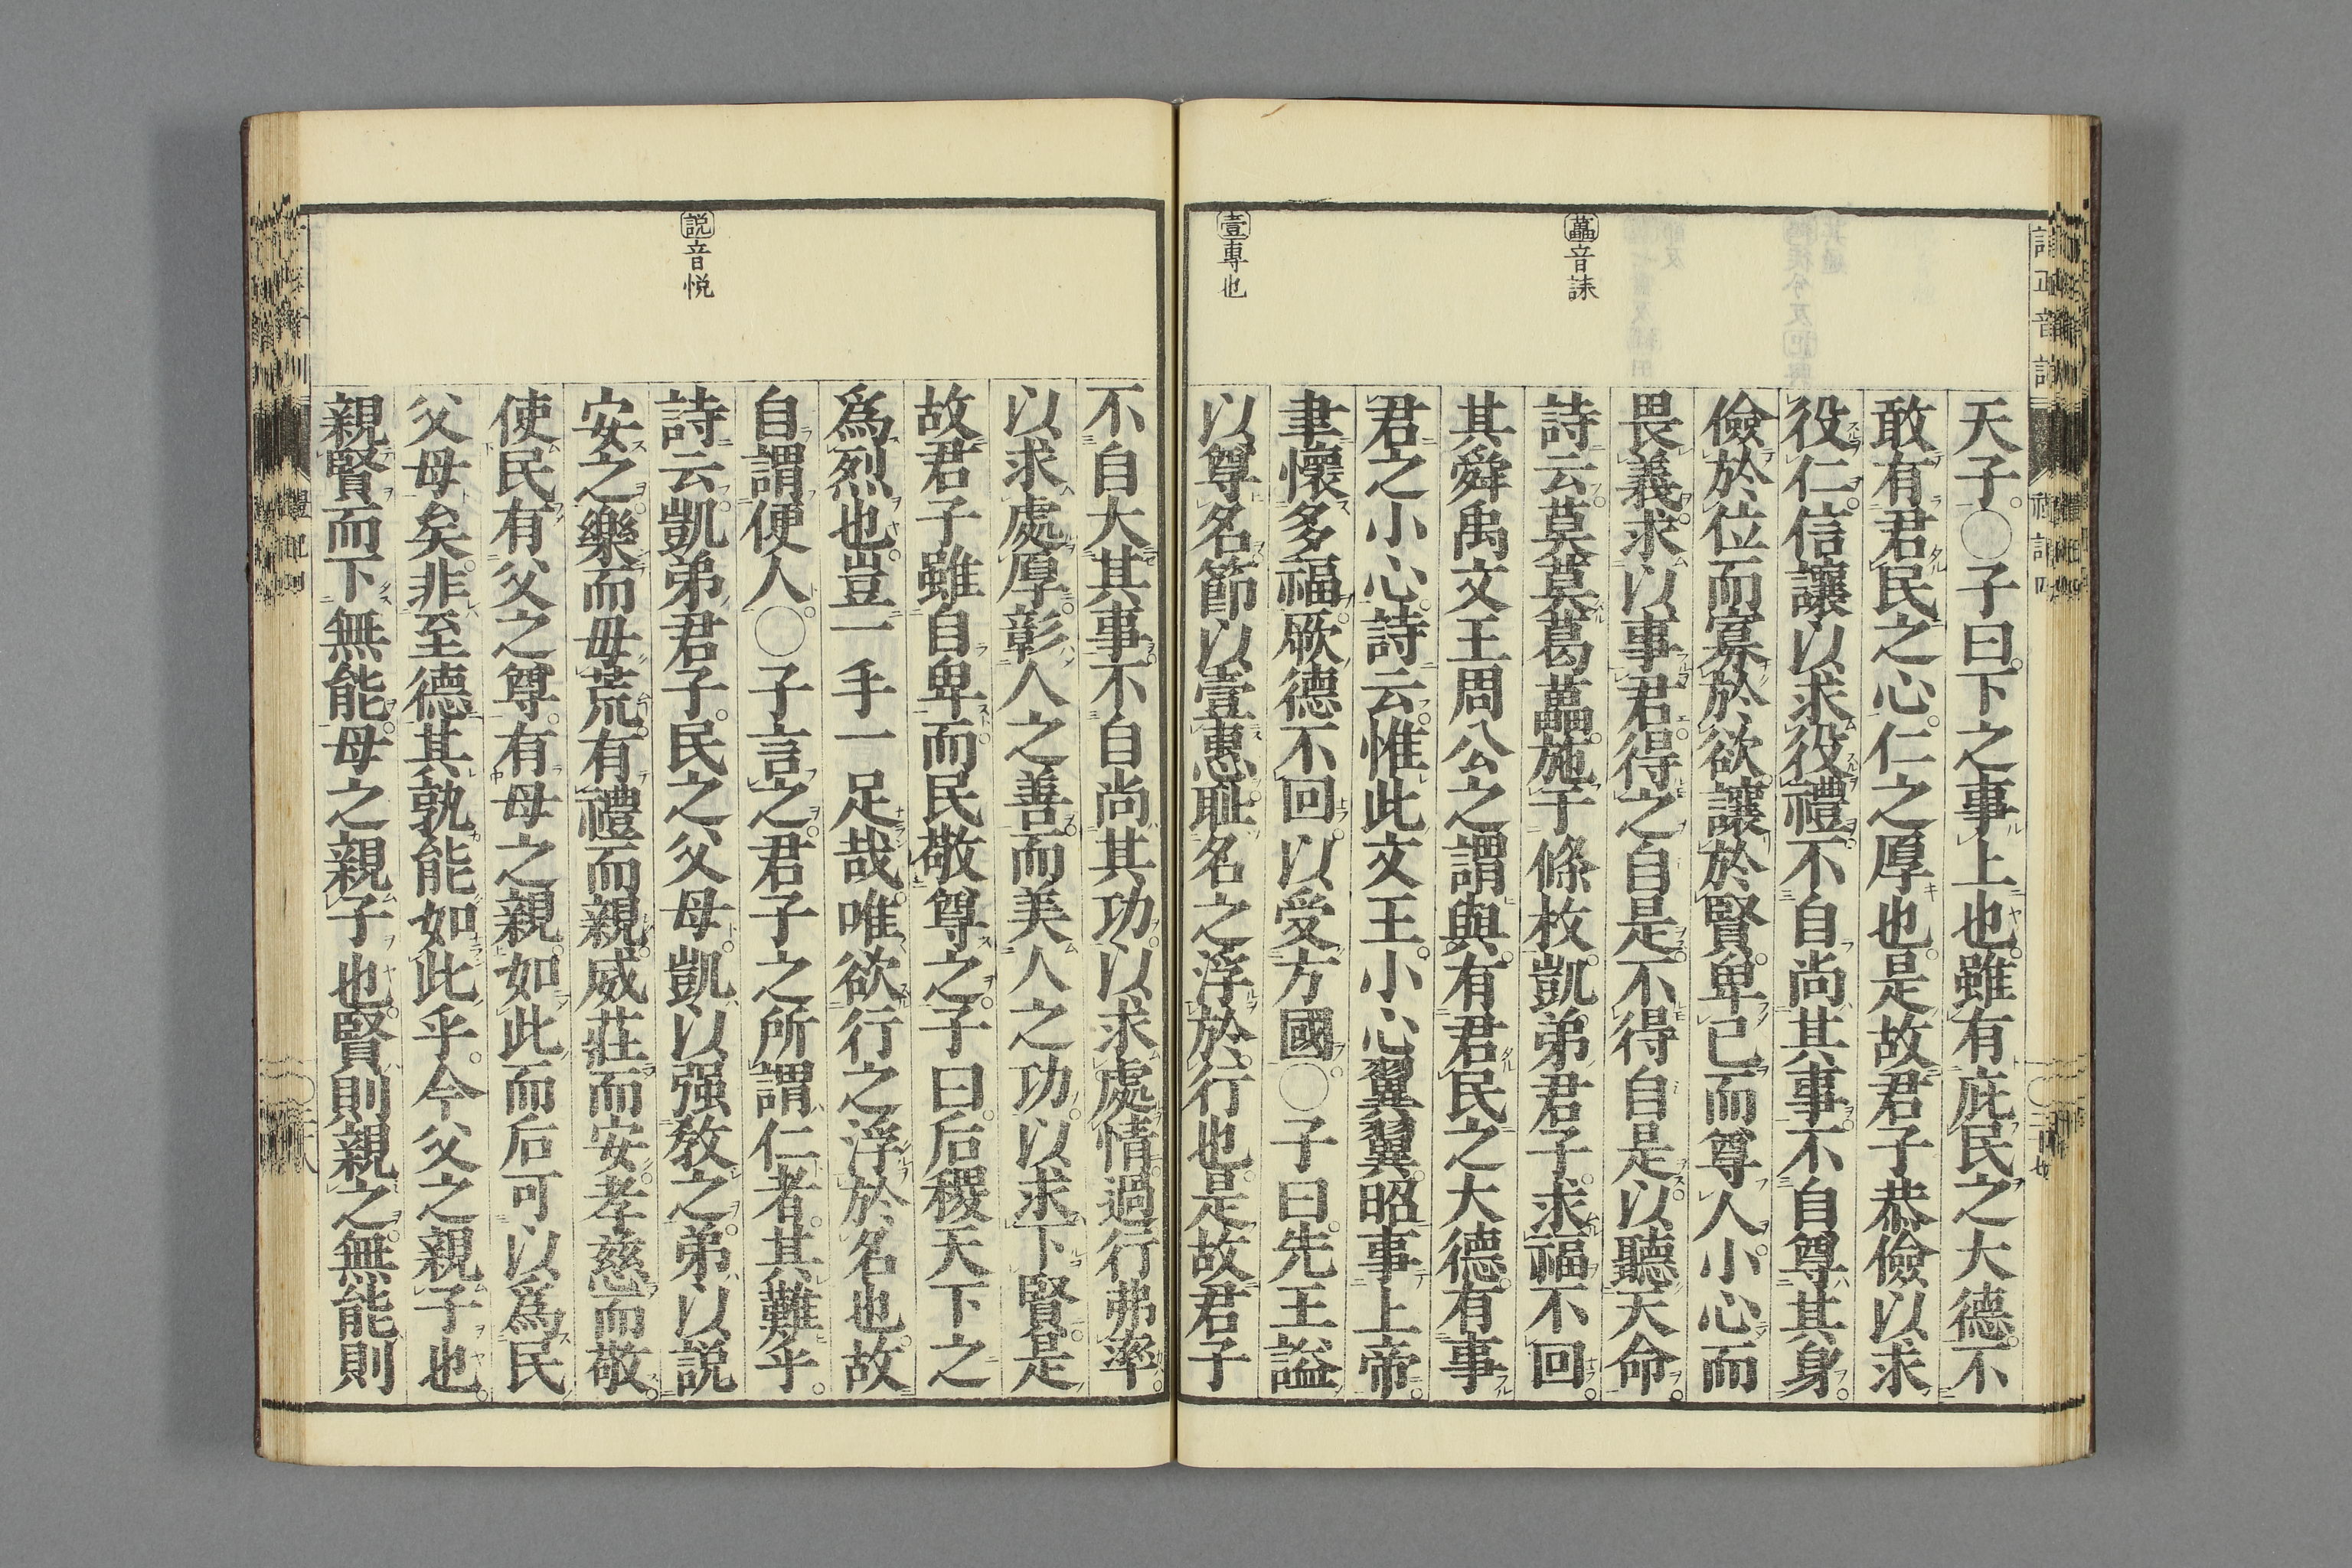 藟音誄
壹專也
天子○子曰下之事上也雖有庇民之大德不
敢有君民之心仁之厚也是故君子恭儉以求
役仁信讓以求役禮不自尚其事不自尊其身
儉於位而寡於欲讓於賢卑己而尊人小心而
畏義求以事君得之自是不得自是以聽天命
詩云莫莫葛藟施于條枚凱弟君子求福不回
其舜禹文王周公之謂與有君民之大德有事
君之小心詩云惟此文王小心翼翼昭事上帝
聿懷多福厥德不回以受方國○子曰先王謚
以尊名節以壹惠恥名之浮於行也是故君子
説音悦
不自大其事不自尚其功以求處情過行弗率
以求處厚彰人之善而美人之功以求下賢是
故君子雖自卑而民敬尊之子曰后稷天下之
為烈也豈一手一足哉唯欲行之浮於名也故
自謂便人○子言之君子之所謂仁者其難乎
詩云凱弟君子民之父母凱以强敎之弟以説
安之樂而毋荒有禮而親威莊而安孝慈而敬
使民有父之尊有母之親如此而后可以為民
父母矣非至德其孰能如此乎今父之親子也
親賢而下無能母之親子也賢則親之無能則